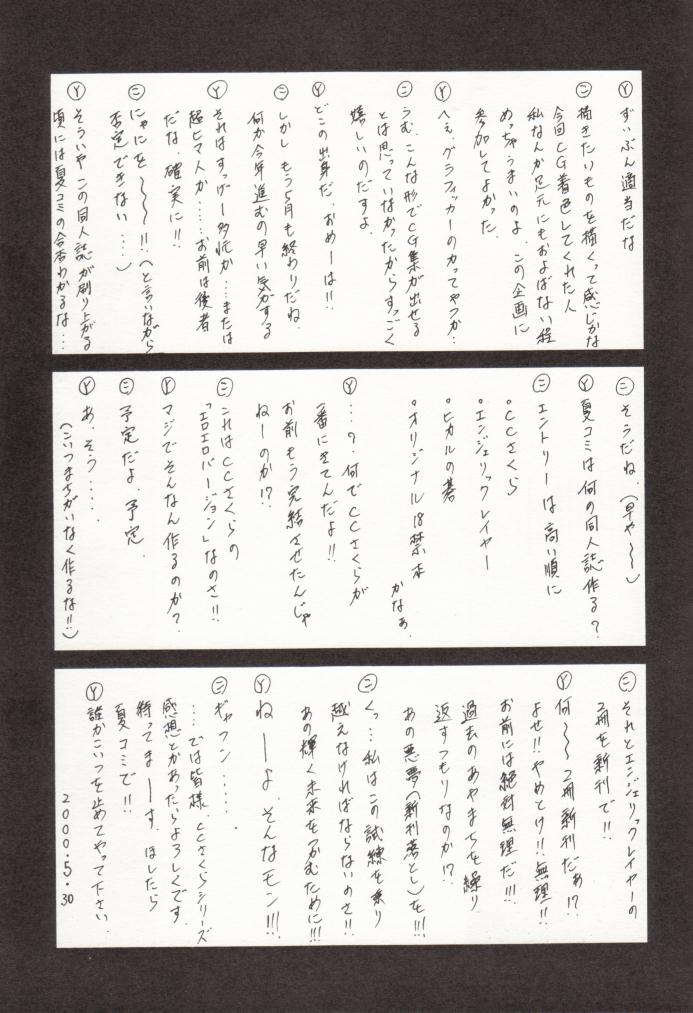 Ⓨ ずいぶん適当だな
㊁ 描きたいものを描くって感じかな
今回CG着色してくれた人
私なんか足元にもおよばない程
めっちゃうまいのよ、この企画に
参加してよかった。
Ⓨ へぇ、グラフィッカーのカってやつか…
㊁ うむ、こんな形でCG集が出せる
とは思っていなかったからすっごく
嬉しいのだすよ。
Ⓨ どこの出身だ、おめーは!!
㊁ しかし もう5月も終わりだね、
何か今年進むの早い気がする
Ⓨ それはすっげー多忙か…または
超ヒマ人か……お前は後者
だな、確実に!!
㊁ にゃにを〜〜〜!!(と言いながら
否定できない……)
Ⓨ そういや この同人誌が刷り上がる
頃には夏コミの合否わかるな…
㊁ そうだね。(早や〜〜)
Ⓨ 夏コミは何の同人誌作る?
㊁ エントリーは高い順に
・CCさくら
・エンジェリックレイヤー
・ヒカルの碁
・オリジナル18禁本
かなぁ。
Ⓨ …?何でCCさくらが
一番にきてんだよ!!
お前もう完結させたんじゃ
ねーのか!?
㊁ これはCCさくらの
「エロエロバージョン」なのさ!!
Ⓨ マジでそんなん作るのか?
㊁ 予定だよ、予定。
Ⓨ あ、そう……
(こいつまちがいなく作るな!!)
㊁ それとエンジェリックレイヤーの
2冊を新刊で!!
Ⓨ 何〜〜2冊新刊だぁ!?
よせ!!やめとけ!!無理!!
お前には絶対無理だ!!!
過去のあやまちを繰り
返すつもりなのか!?
あの悪夢(新刊落とし)を!!!
㊁ くっ…私はこの試練を乗り
越えなければならないのさ!!
あの輝く未来をつかむために!!!
Ⓨ ねーーよ そんなモン!!!
㊁ ギャフン……。
…では皆様、CCさくらシリーズ
感想とかあったらよろしくです。
待ってまーーす。ほしたら
夏コミで!!
Ⓨ 誰かこいつを止めてやって下さい。
2000.5.30